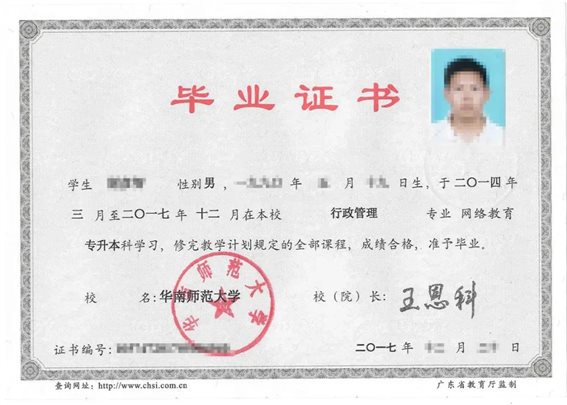 毕业证书
学生 性别男， 年 月 日生，于二〇一四年
三月至二〇一七年十二月在本校 行政管理 专业 网络教育
专升本科学习，修完教学计划规定的全部课程，成绩合格，准予毕业。
校 名：华南师范大学 校（院）长：王恩科
华南师范大学
证书编号： 二〇一七年 月 日
查询网址：http://www.chsi.com.cn 广东省教育厅监制